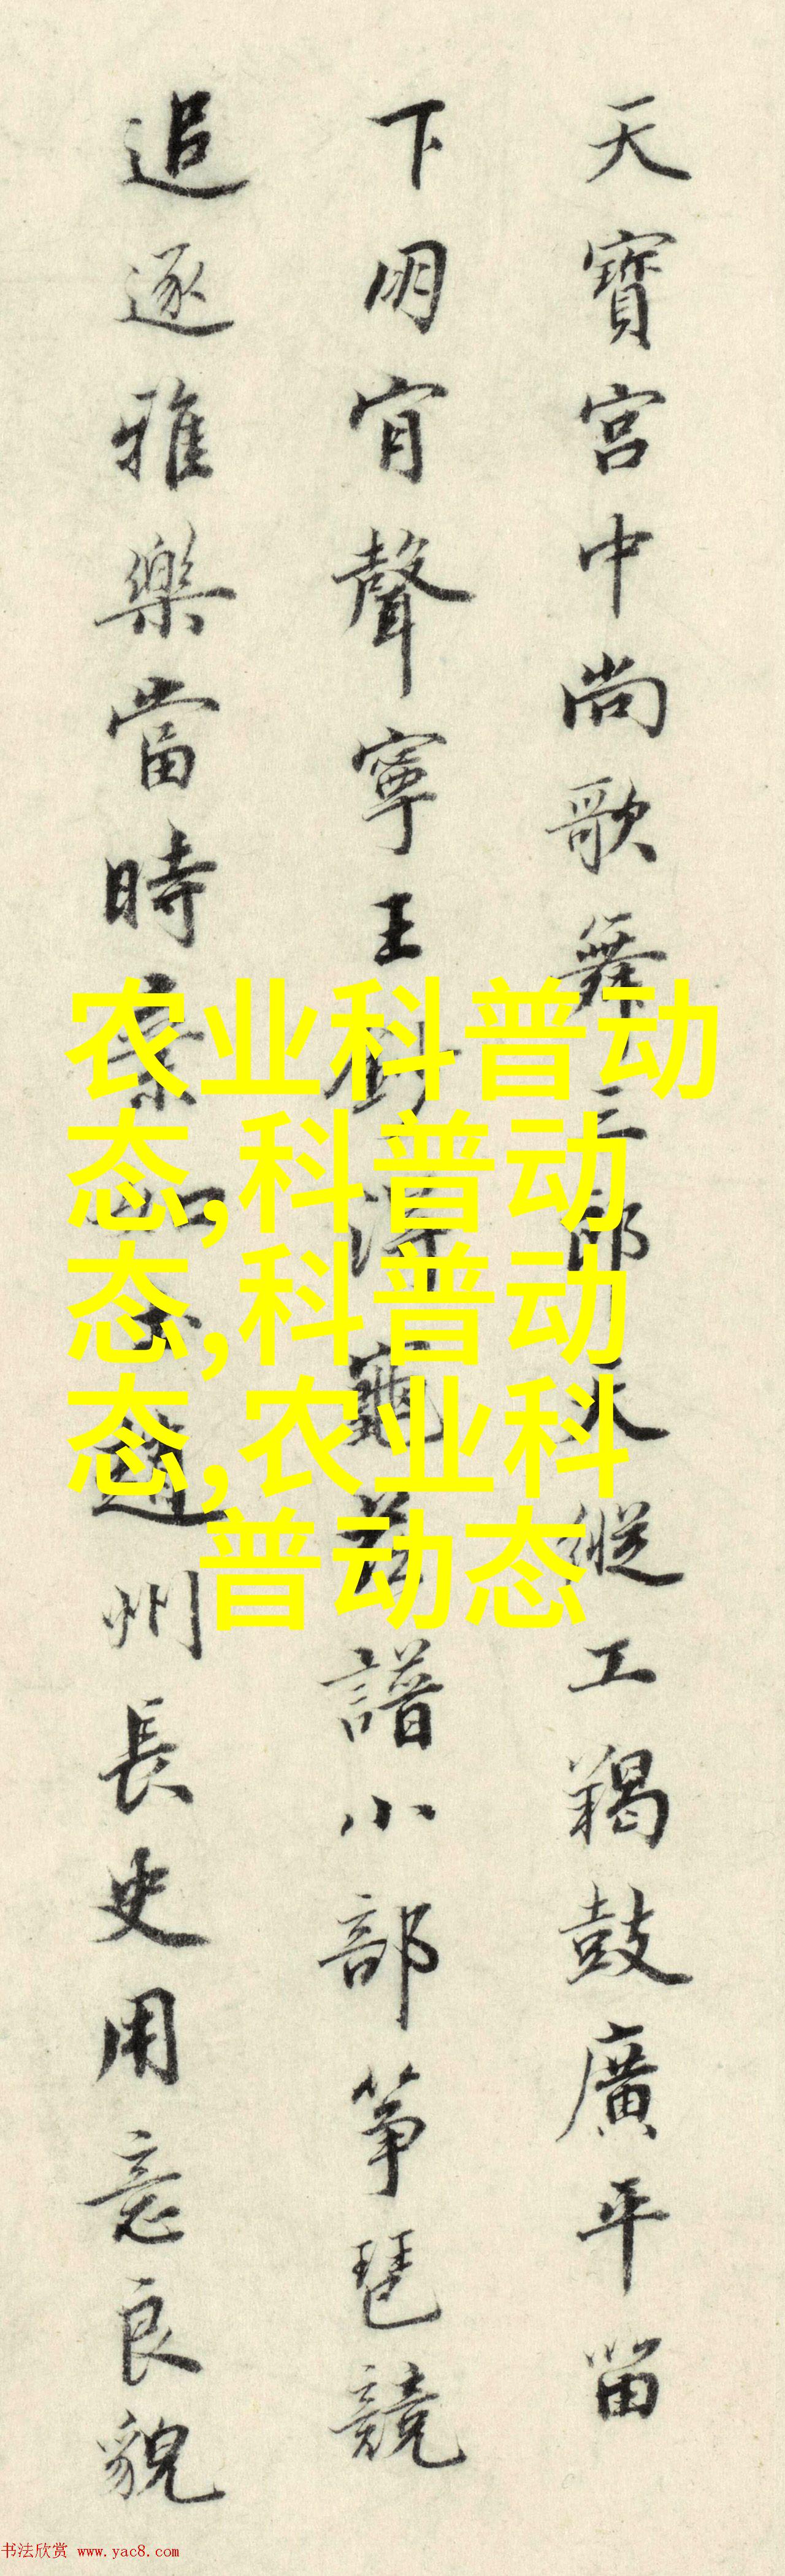 天寶宮中尚歌舞三郎天縱工羯鼓廣平留
下明宵聲寧王譜小部箏琶競
追逐雅樂當時棄州長史用意良貌
农业科普动
态,科普动
态,科普动
态,农业科
普动态
书法欣赏 www.yac8.com